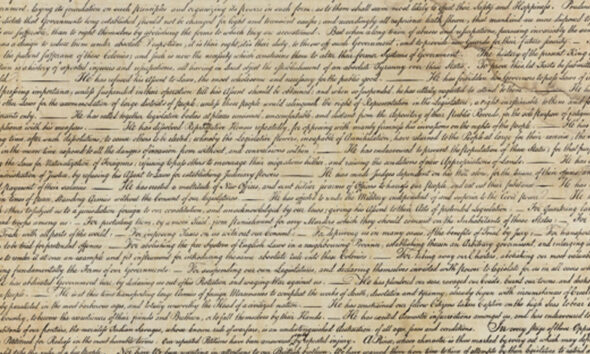 ment, laying its foundation on such principles and organizing its powers in such form, as to them shall seem most likely to effect their Safety and Happiness. Prudence
dictate that Governments long established should not be changed for light and transient causes; and accordingly all experience hath shewn, that mankind are more disposed to
are sufferable, than to right themselves by abolishing the forms to which they are accustomed. But when a long train of abuses and usurpations, pursuing invariably the same
a design to reduce them under absolute Despotism, it is their right, it is their duty, to throw off such Government, and to provide new Guards for their future security.
the patient sufferance of these Colonies; and such is now the necessity which constrains them to alter their former Systems of Government. The history of the present King of
repeated injuries and usurpations, all having in direct object the establishment of an absolute Tyranny over these States. To prove this let Facts be submitted
He has refused his Assent to Laws, the most wholesome and necessary for the public good. He has forbidden his Governors to pass Laws of
pressing importance, unless suspended in their operation till his Assent should be obtained; and when so suspended, he has utterly neglected to attend to them. He has
other Laws for the accommodation of large districts of people, unless those people would relinquish the right of Representation in the Legislature, a right inestimable to them and
only. He has called together legislative bodies at places unusual, uncomfortable, and distant from the depository of their Public Records, for the sole purpose of
with his measures. He has dissolved Representative Houses repeatedly, for opposing with manly firmness his invasions on the rights of the people.
time, after such dissolutions, to cause others to be elected; whereby the Legislative powers, incapable of Annihilation, have returned to the People at large for their exercise; the
in the mean time exposed to all the dangers of invasion from without, and convulsions within. He has endeavoured to prevent the Population of these States; for that
the Laws for Naturalization of Foreigners; refusing to pass others to encourage their migrations hither, and raising the conditions of new Appropriations of Lands. He has
of Justice, by refusing his Assent to Laws for establishing Judiciary powers. He has made Judges dependent on his Will alone, for the tenure of their offices, and
payment of their salaries. He has erected a multitude of New Offices, and sent hither swarms of Officers to harrass our people, and eat out their substance. He has
in times of peace, Standing Armies without the Consent of our legislatures. He has affected to render the Military independent of and superior to the Civil power. He has
others to subject us to a jurisdiction foreign to our constitution, and unacknowledged by our laws; giving his Assent to their Acts of pretended Legislation: For
troops among us: For protecting them, by a mock Trial, from punishment for any Murders which they should commit on the Inhabitants of these States: For
Trade with all parts of the world: For imposing Taxes on us without our Consent: For depriving us in many cases, of the benefits of Trial by Jury: For
to be tried for pretended offences For abolishing the free System of English Laws in a neighbouring Province, establishing therein an Arbitrary government, and enlarging
to render it at once an example and fit instrument for introducing the same absolute rule into these Colonies: For taking away our Charters, abolishing our most
and altering fundamentally the Forms of our Governments: For suspending our own Legislatures, and declaring themselves invested with power to legislate for us in all cases
He has abdicated Government here, by declaring us out of his Protection and waging War against us. He has plundered our seas, ravaged our Coasts, burnt our towns, and
people. He is at this time transporting large Armies of foreign Mercenaries to compleat the works of death, desolation and tyranny, already begun with circumstances of
in the most barbarous ages, and totally unworthy the Head of a civilized nation. He has constrained our fellow Citizens taken Captive on the high Seas to bear
to become the executioners of their friends and Brethren, or to fall themselves by their Hands. He has excited domestic insurrections amongst us, and has endeavoured to
of our frontiers, the merciless Indian Savages, whose known rule of warfare, is an undistinguished destruction of all ages, sexes and conditions. In every stage of these
Petitioned for Redress in the most humble terms: Our repeated Petitions have been answered only by repeated injury. A Prince, whose character is thus